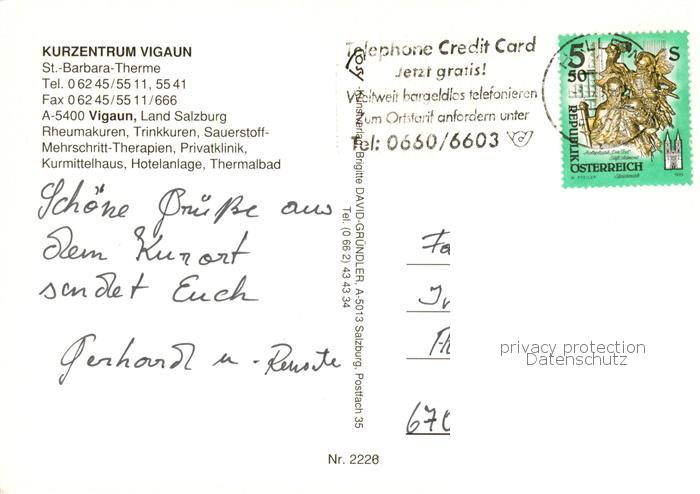 KURZENTRUM VIGAUN
St.-Barbara-Therme
Tel. 0 62 45/55 11, 55 41
Fax 0 62 45/55 11/666
A-5400 Vigaun, Land Salzburg
Rheumakuren, Trinkkuren, Sauerstoff-
Mehrschritt-Therapien, Privatklinik,
Kurmittelhaus, Hotelanlage, Thermalbad
Schöne Grüße aus
dem Kurort
sendet Euch
Gerhard u. Renate
Kunstverlag Brigitte DAVID-GRÜNDLER, A-5013 Salzburg, Postfach 35
Tel. (0 66 2) 43 43 34
Telephone Credit Card
Jetzt gratis!
Weltweit bargeldlos telefonieren
Zum Ortstarif anfordern unter
Tel: 0660/6603
5 50 S
REPUBLIK
ÖSTERREICH
Fa
67
privacy protection
Datenschutz
Nr. 2226